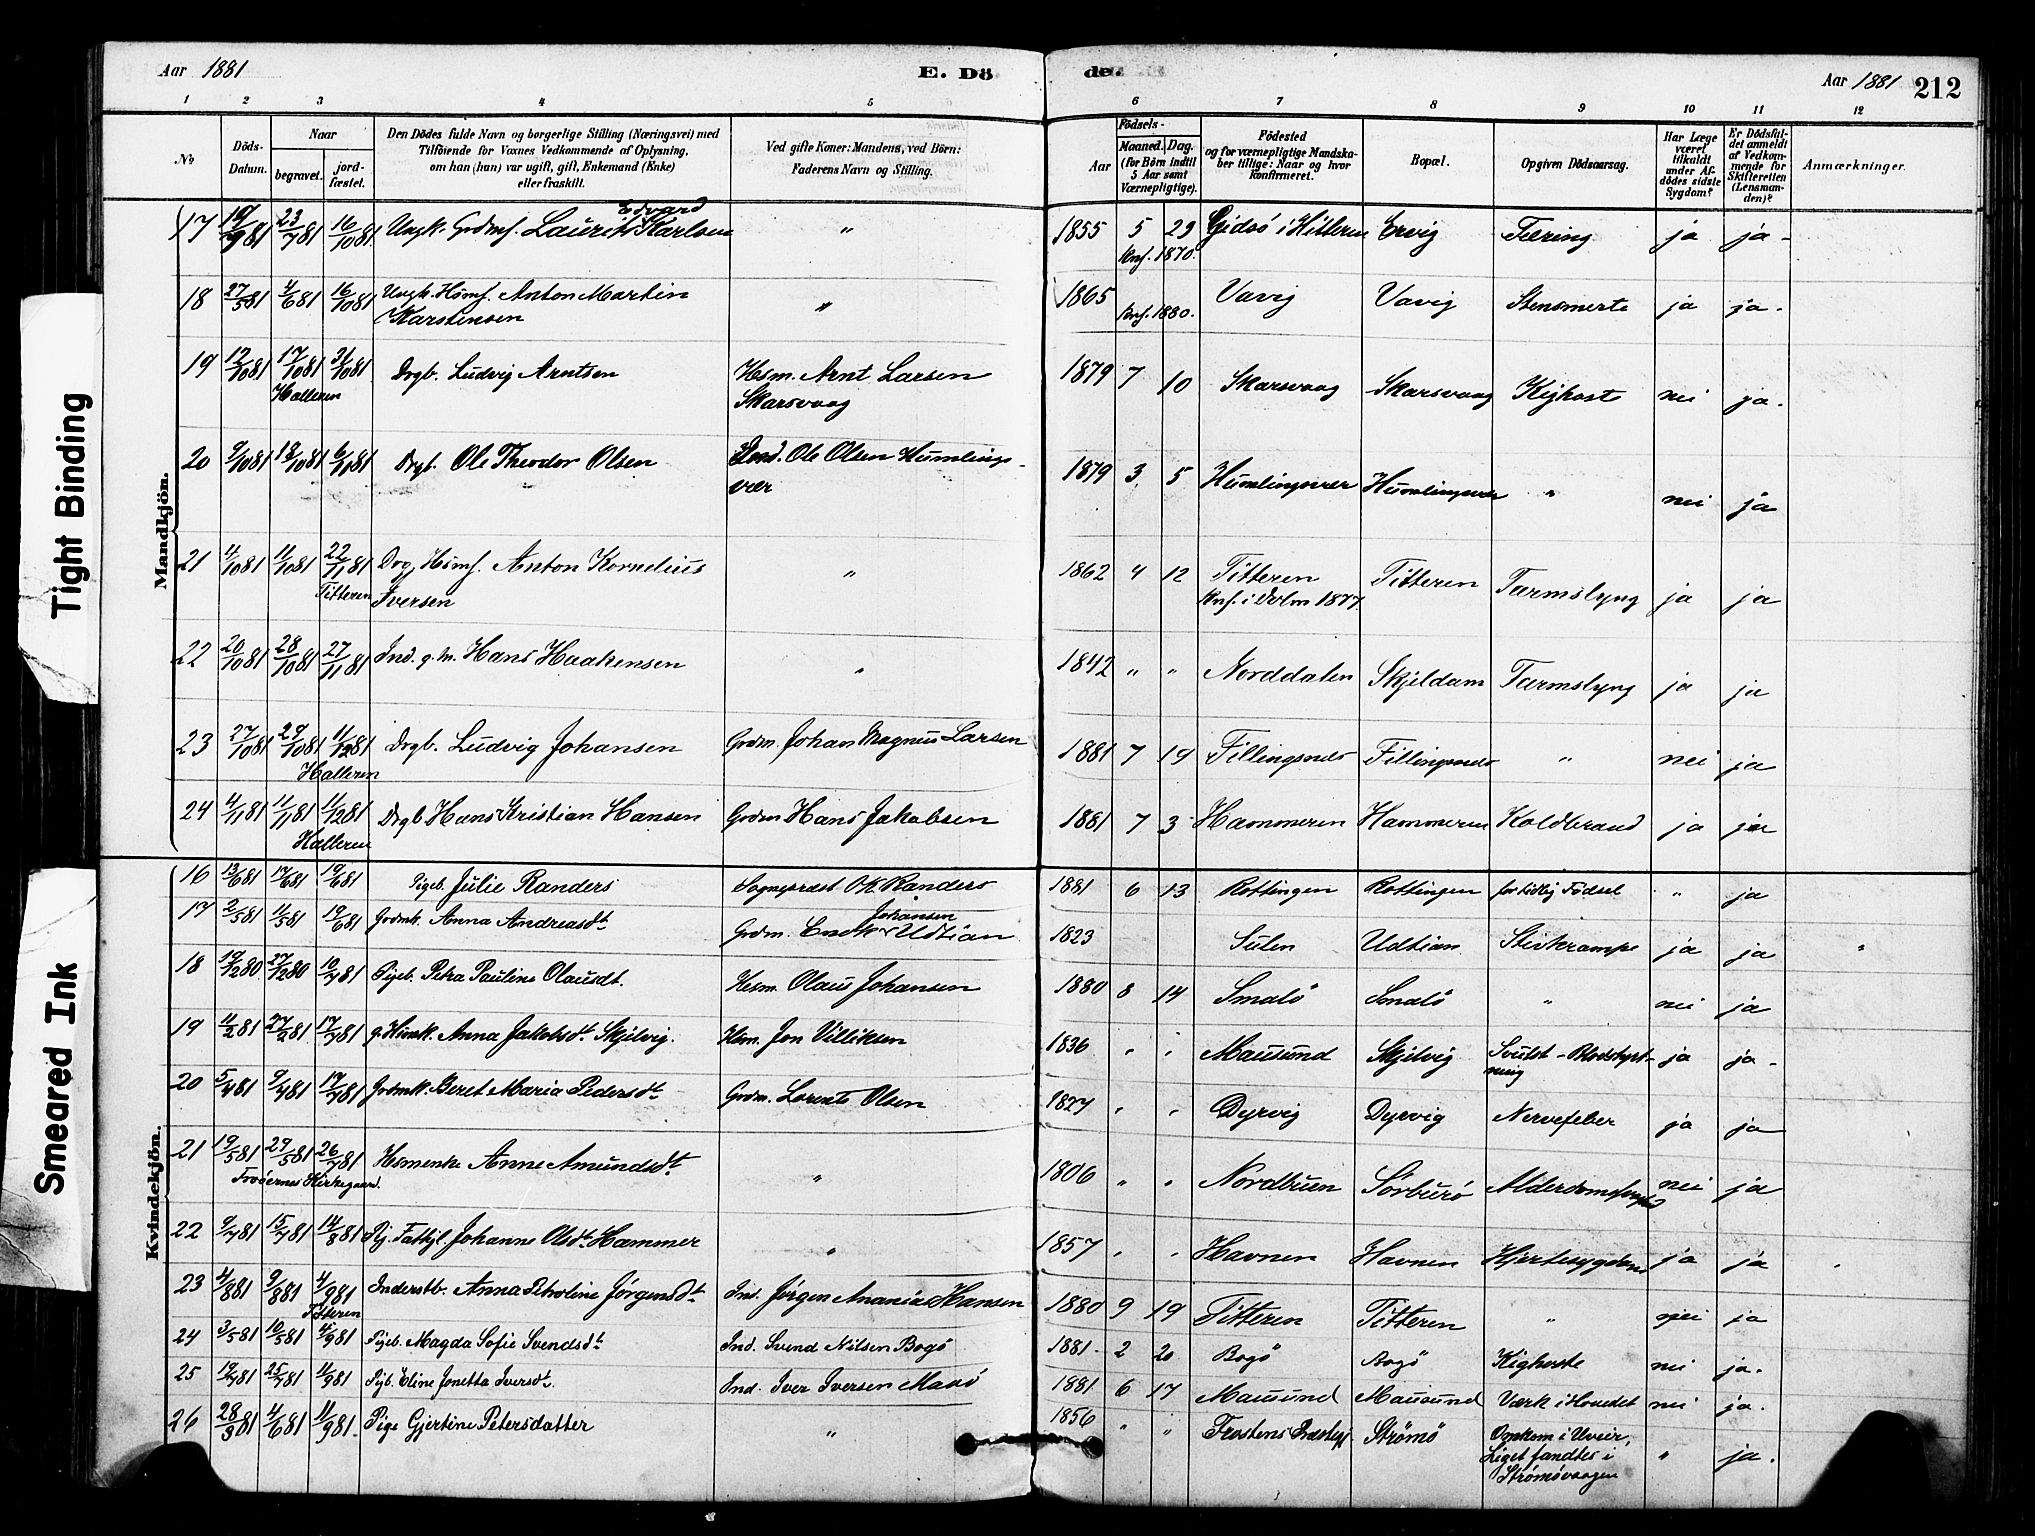 Aar 1881
E. Dö
de.
Aar 1881 212
1 2 3 4 5 6 7 8 9 10 11 12
No
Döds-Datum.
Naar
begravet.
jord-fæstet.
Den Dödes fulde Navn og borgerlige Stilling (Næringsvei) med
Tilföiende for Voxnes Vedkommende af Oplysning,
om han (hun) var ugift, gift, Enkemand (Enke)
eller fraskilt.
Ved gifte Koner: Mandens, ved Börn:
Faderens Navn og Stilling.
Födsels-
Aar
Maaned. Dag.
(for Börn indtil
5 Aar samt
Værnepligtige).
Födested
og for værnepligtige Mandska-
ber tillige: Naar og hvor
konfirmeret.
Bopæl.
Opgiven Dödsaarsag.
Har Læge
været
tilkaldt
under Af-
dödes sidste
Sygdom?
Er Dödsfal-
det anmeldt
af Vedkom-
mende for
Skifteretten
(Lensman-
den)?
Anmærkninger.
Mandkjön.
17 19/781 23/781 16/1081 Ungk. Grdmf. Laurits Edvard Karlsen " 1855 5 29 Gidsö i Hitteren Ervig Tæring ja ja-
Knf. 1870.
18 27/581 4/681 16/1081 Ungk. Hsmf. Anton Martin " 1865 Vavig Vavig Stensmerte ja ja.
Karstensen Knf. 1880.
19 12/1081 17/1081 31/1081 Drgb. Ludvig Arntsen Hsm. Arnt Larsen 1879 7 10 Skarsvaag Skarsvaag Kighoste nei ja.
Halleren Skarsvaag
20 9/1081 18/1081 6/1181 Drgb. Ole Theodor Olsen Ind. Ole Olsen Humlings- 1879 3 5 Humlingsvær Humlingsvær " nei ja
vær
21 4/1081 11/1081 22/1181 Drg. Hsmf. Anton Kornelius " 1862 4 12 Titteren Titteren Tarmslyng ja ja
Titteren Iversen Knf. i Dolm 1877.
22 20/1081 28/1081 27/1181 Ind. g. m. Hans Haakensen " 1842 " " Norddalen Skjeldam Tarmslyng ja ja
23 27/1081 29/1081 11/1281 Drgb. Ludvig Johansen Grdm. Johan Magnus Larsen 1881 7 19 Fillingsnes Fillingsnes " nei ja
Halleren
24 4/1181 11/1181 11/1281 Drgb Hans Kristian Hansen Grdm Hans Jakobsen 1881 7 3 Hammeren Hammeren Koldbrand ja ja
Halleren
Kvindekjön.
16 13/681 17/681 19/681 Pigeb. Julie Randers Sognepræst O. K. Randers 1881 6 13 Rottingen Rottingen for tidlig Födsel " ja
17 2/581 11/581 19/681 Grdmk. Anna Andreasdt Grdm. Johansen Udtian 1823 Sulen Udtian Stivkrampe ja ja "
18 19/1280 27/1280 10/781 Pigeb. Petra Pauline Olausdt. Hsm. Olaus Johansen 1880 8 14 Smalö Smalö " nei ja
19 11/281 27/281 17/781 g. Hsmk. Anna Jakobsdt Skjelvig. Hsm. Jon Villiksen 1836 " " Mausund Skjelvig Svulst - Blodstyrt- ja ja-
ning
20 5/781 9/781 17/781 Grdmk. Beret Maria Pedersdt Grdm. Lorents Olsen 1827 " " Dyrvig Dyrvig Nervefeber ja ja
21 19/581 29/581 26/781 Hsmenke Anne Amundsdt " 1806 " " Nordbuen Sörburö nei ja
Froöernes Kirkegaard.
22 9/781 15/781 14/881 Pig. Fattigl. Johanne Olsdt. Hammer " 1857 " " Havnen Havnen Hjertesygdom ja ja
23 4/881 9/881 4/981 Inderstb. Anna Petroline Jørgensdt Ind. Jørgen Ananias Hansen 1880 9 19 Titteren Titteren " nei ja
Titteren
24 3/581 10/581 4/981 Pigeb. Magda Sofie Svendsdt Ind. Svend Nilsen Bogö 1881. 2 20 Bogö Bogö Kighoste nei ja.
25 19/781 25/781 11/981 Pigb. Eline Jonetta Iversdt. Ind. Iver Iversen 1881 6 17 Mausund Mausund Værk i Hovedet nei ja.
26 28/381 4/681 11/981. Pige Gjertine Petersdatter " 1856 " " Frostens Præstegj. Strömö Omkom i Uveir, " ja.
Liget fandtes i
Strömövaagen
Tight Binding
Smeared Ink